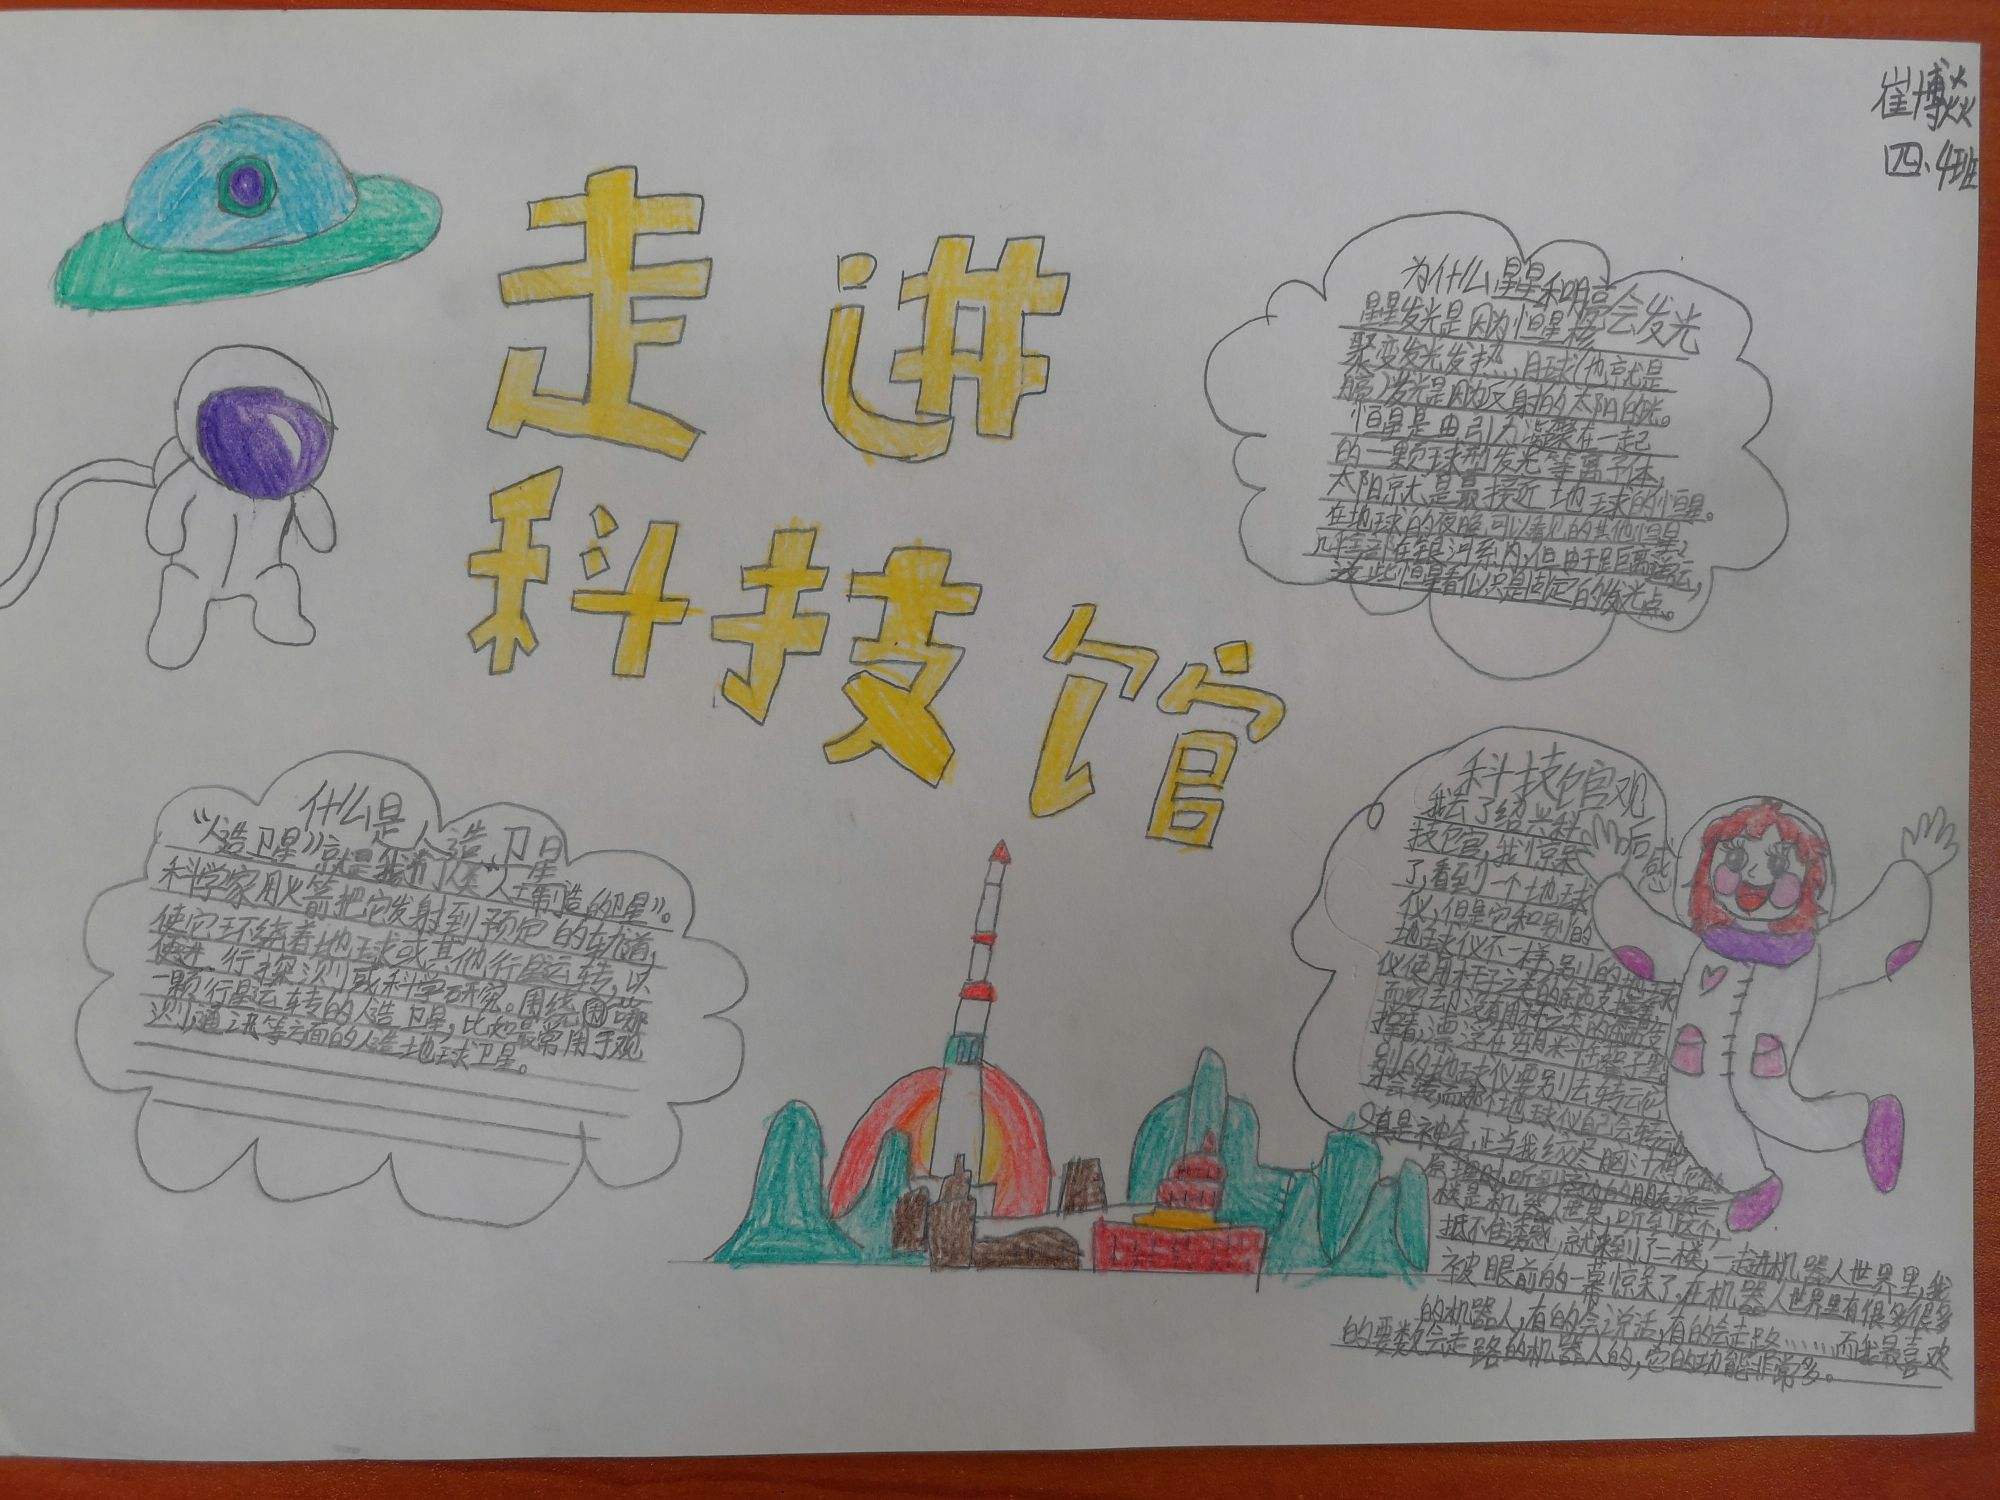 崔博焱
四.4班
走进
科技馆
为什么星星和月亮会发光
星星发光是因为恒星核
聚变发光发热,月球(也就是
月亮)发光是因为反射的太阳的光。
恒星是由引力凝聚在一起
的一颗球型发光等离子体,
太阳就是最接近地球的恒星。
在地球的夜晚可以看见的其他恒星,
几乎全部在银河系内,但由于距离遥远,
这些恒星看似只是固定的发光点。
什么是人造卫星
“人造卫星》就是我们人类“人工制造的卫星”。
科学家用火箭把它发射到预定的轨道,
使它环绕着地球或其他行星运转,以
便进行探测或科学研究。围绕哪
一颗行星运转的人造卫星,比如最常用于观
测,通讯等方面的人造地球卫星。
科技馆观后感
我去了绍兴科
技馆,我惊呆
了,看到一个地球
仪,但是它和别的
地球仪不一样,别的地球
仪使用杆子之类的东西支撑着,
而它却没有用杆子之类的东西支
撑着,漂浮在
别的地球仪要别人去转它它
才会转而那个地球仪自己会转动,
真是神奇,正当我绞尽脑汁想它的
原理时,听到旁边的朋友说二
楼是机器人世界,听到这个,
抵不住诱惑,就来到了二楼,一走进机器人世界里,我
被眼前的一幕惊呆了,在机器人世界里有很多很多
的机器人,有的会说话,有的会走路……而我最喜欢
的要数会走路的机器人的,它的功能非常多。